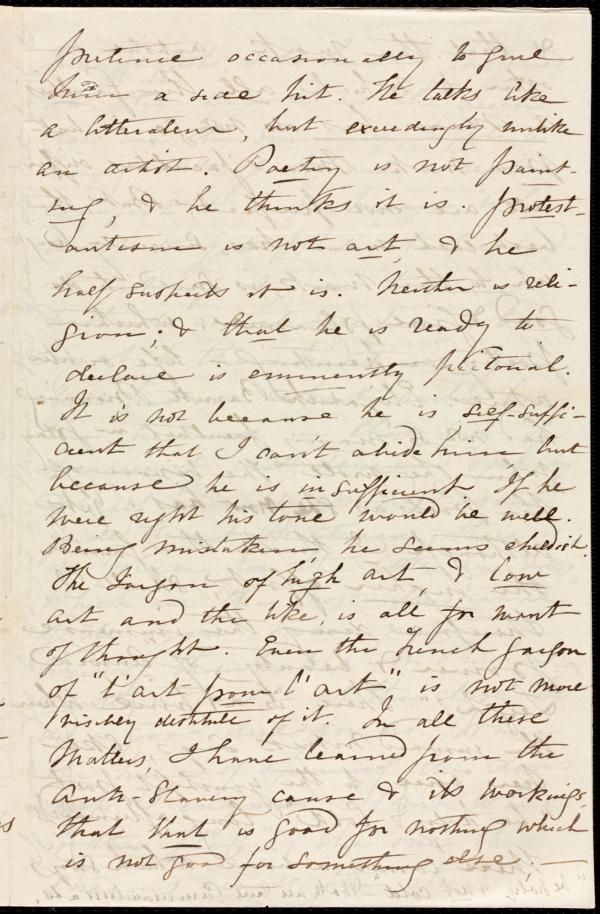 pretence occasionally to give
him a side hit. He talks like
a litterateur, but exceedingly unlike
an artist. Poetry is not paint-
ing, & he thinks it is. Protest-
antism is not art, & he
half suspects it is. Neither is reli-
gion; & that he is ready to
declare is eminently pictorial.
It is not because he is self-suffi-
cient that I can't abide him, but
because he is insufficient. If he
were right his tone would be well.
Being mistaken, he seems childish.
The jargon of high art, & low
art and the like, is all for want
of thought. Even the French jargon
of "l'art pour l'art", is not more
destitute of it. In all these
matters, I have learned from the
Anti-Slavery cause & its workings,
that that is good for nothing which
is not good for something else; —